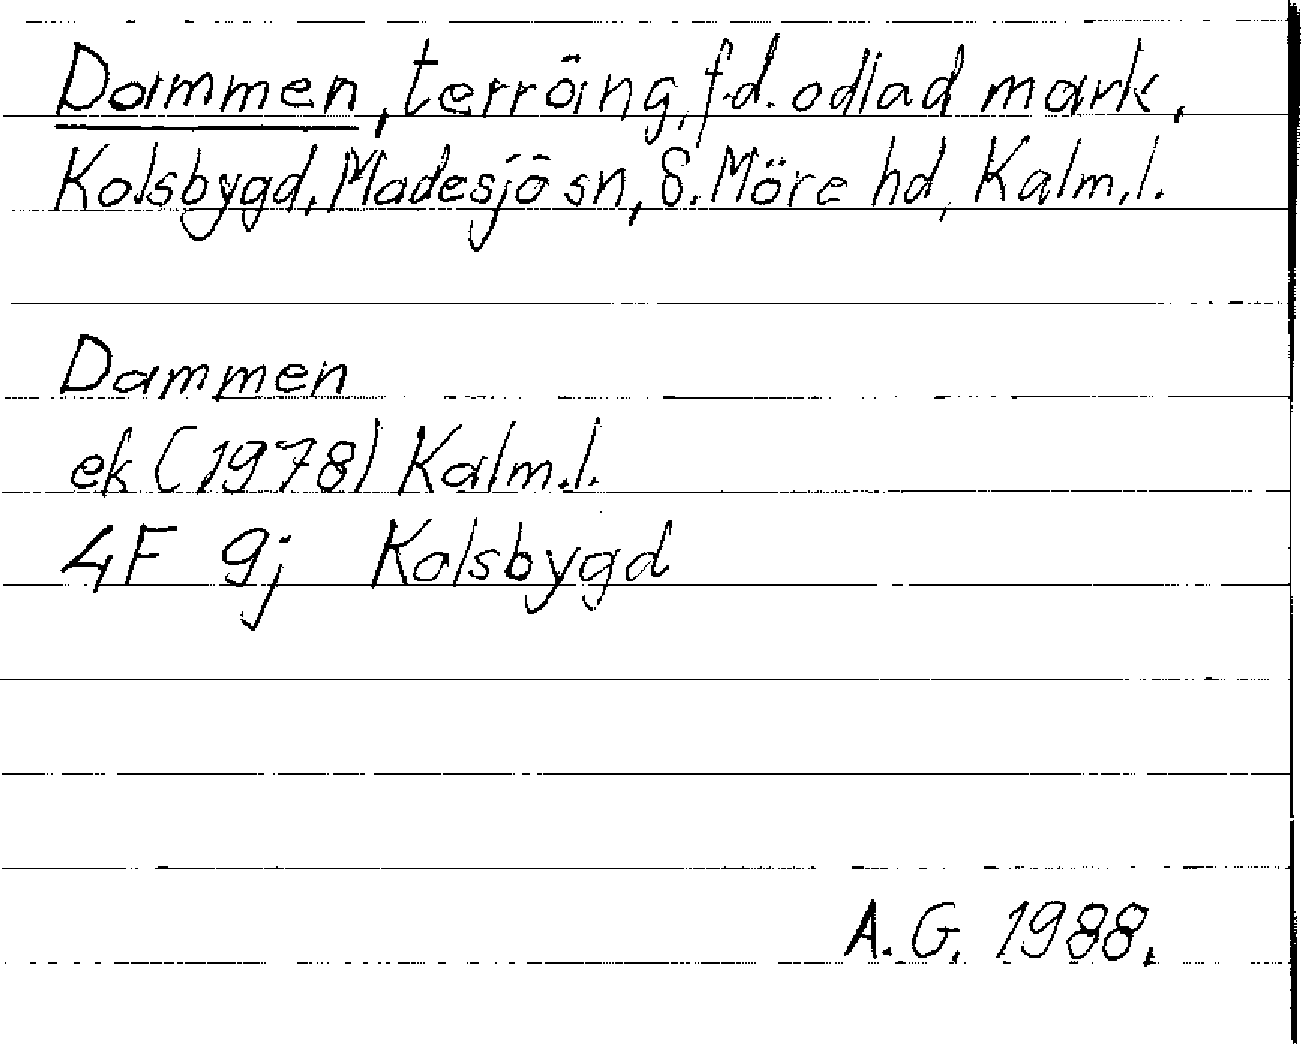 Dammen, terräng, f.d. odlad mark,
Kolsbygd, Madesjö sn, S. Möre hd, Kalm.l.
Dammen
ek (1978) Kalm.l.
4F 9j Kolsbygd
A.G. 1988.